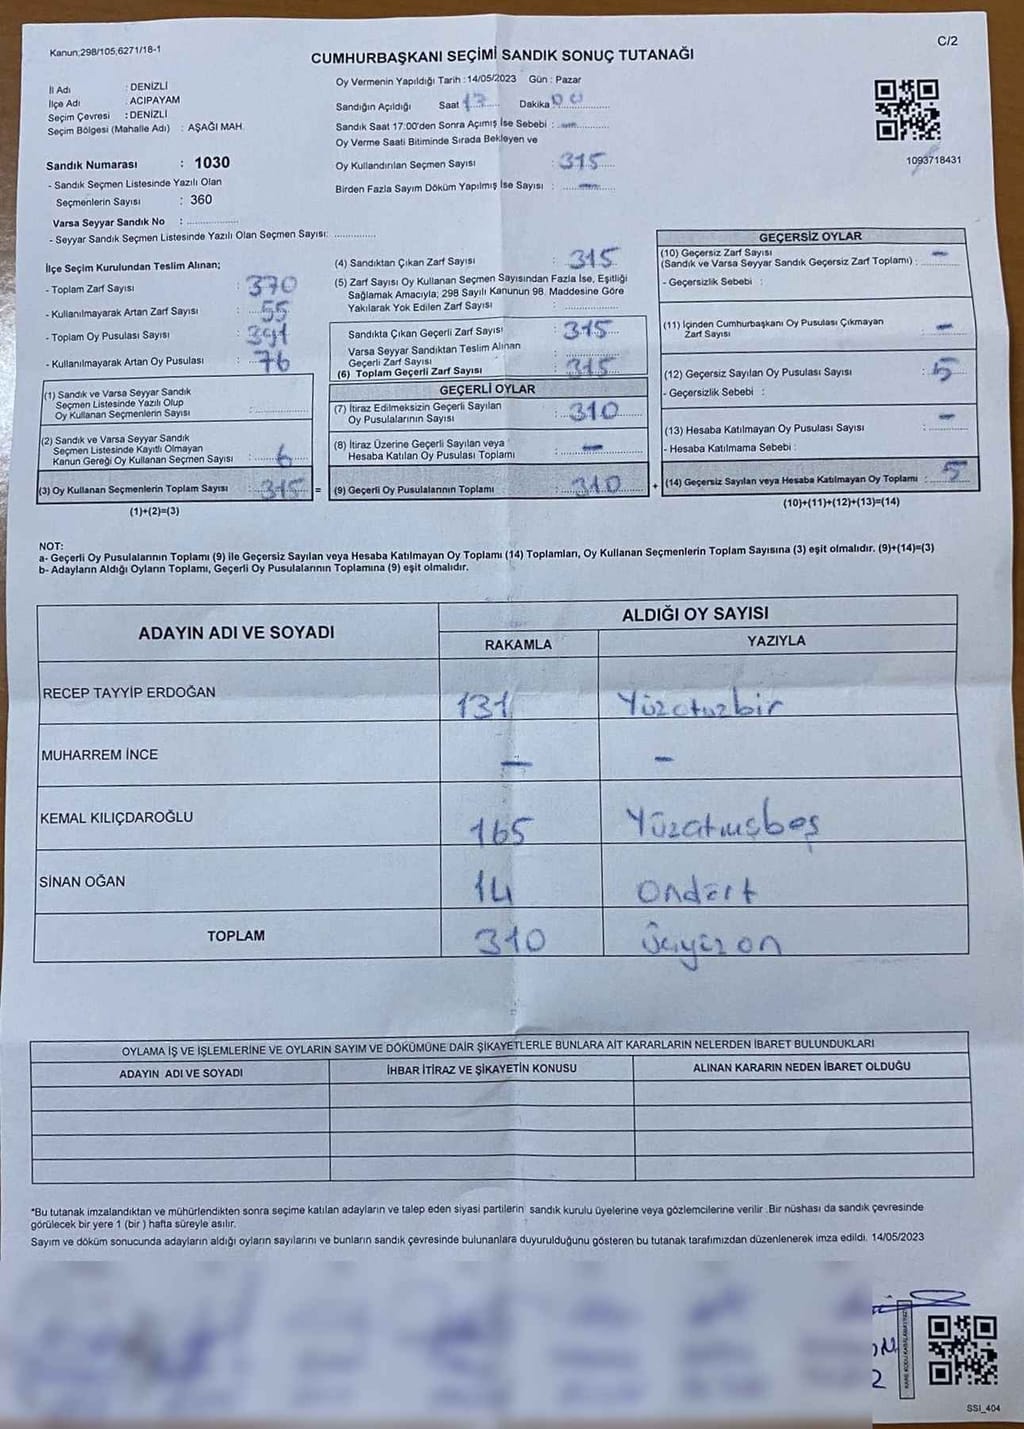 Kanun,298/105,6271/18-1
C/2
CUMHURBAŞKANI SEÇİMİ SANDIK SONUÇ TUTANAĞI
İl Adı : DENİZLİ
İlçe Adı : ACIPAYAM
Seçim Çevresi : DENİZLİ
Seçim Bölgesi (Mahalle Adı) : AŞAĞI MAH.
Sandık Numarası : 1030
- Sandık Seçmen Listesinde Yazılı Olan
Seçmenlerin Sayısı : 360
Varsa Seyyar Sandık No : ..................
- Seyyar Sandık Seçmen Listesinde Yazılı Olan Seçmen Sayısı: ..............
Oy Vermenin Yapıldığı Tarih : 14/05/2023 Gün : Pazar
Sandığın Açıldığı Saat 17 Dakika 00
Sandık Saat 17:00'den Sonra Açımış İse Sebebi : -
Oy Verme Saati Bitiminde Sırada Bekleyen ve
Oy Kullandırılan Seçmen Sayısı : 315
Birden Fazla Sayım Döküm Yapılmış İse Sayısı : -
1093718431
İlçe Seçim Kurulundan Teslim Alınan;
- Toplam Zarf Sayısı : 370
- Kullanılmayarak Artan Zarf Sayısı : 55
- Toplam Oy Pusulası Sayısı : 391
- Kullanılmayarak Artan Oy Pusulası : 76
(1) Sandık ve Varsa Seyyar Sandık
Seçmen Listesinde Yazılı Olup
Oy Kullanan Seçmenlerin Sayısı : ..............
(2) Sandık ve Varsa Seyyar Sandık
Seçmen Listesinde Kayıtlı Olmayan
Kanun Gereği Oy Kullanan Seçmen Sayısı : 6
(3) Oy Kullanan Seçmenlerin Toplam Sayısı : 315 =
(1)+(2)=(3)
(4) Sandıktan Çıkan Zarf Sayısı : 315
(5) Zarf Sayısı Oy Kullanan Seçmen Sayısından Fazla İse, Eşitliği
Sağlamak Amacıyla; 298 Sayılı Kanunun 98. Maddesine Göre
Yakılarak Yok Edilen Zarf Sayısı : ..............
Sandıkta Çıkan Geçerli Zarf Sayısı : 315
Varsa Seyyar Sandıktan Teslim Alınan
Geçerli Zarf Sayısı : ..............
(6) Toplam Geçerli Zarf Sayısı : 315
GEÇERLİ OYLAR
(7) İtiraz Edilmeksizin Geçerli Sayılan
Oy Pusulalarının Sayısı : 310
(8) İtiraz Üzerine Geçerli Sayılan veya
Hesaba Katılan Oy Pusulası Toplamı : -
(9) Geçerli Oy Pusulalarının Toplamı : 310 +
GEÇERSİZ OYLAR
(10) Geçersiz Zarf Sayısı
(Sandık ve Varsa Seyyar Sandık Geçersiz Zarf Toplamı) : -
- Geçersizlik Sebebi :
(11) İçinden Cumhurbaşkanı Oy Pusulası Çıkmayan
Zarf Sayısı : -
(12) Geçersiz Sayılan Oy Pusulası Sayısı : 5
- Geçersizlik Sebebi :
(13) Hesaba Katılmayan Oy Pusulası Sayısı : -
- Hesaba Katılmama Sebebi :
(14) Geçersiz Sayılan veya Hesaba Katılmayan Oy Toplamı : 5
(10)+(11)+(12)+(13)=(14)
NOT:
a- Geçerli Oy Pusulalarının Toplamı (9) ile Geçersiz Sayılan veya Hesaba Katılmayan Oy Toplamı (14) Toplamları, Oy Kullanan Seçmenlerin Toplam Sayısına (3) eşit olmalıdır. (9)+(14)=(3)
b- Adayların Aldığı Oyların Toplamı, Geçerli Oy Pusulalarının Toplamına (9) eşit olmalıdır.
ADAYIN ADI VE SOYADI
ALDIĞI OY SAYISI
RAKAMLA YAZIYLA
RECEP TAYYİP ERDOĞAN 131 Yüzotuzbir
MUHARREM İNCE - -
KEMAL KILIÇDAROĞLU 165 Yüzatmışbeş
SİNAN OĞAN 14 Ondört
TOPLAM 310 Üçyüz on
OYLAMA İŞ VE İŞLEMLERİNE VE OYLARIN SAYIM VE DÖKÜMÜNE DAİR ŞİKAYETLERLE BUNLARA AİT KARARLARIN NELERDEN İBARET BULUNDUKLARI
ADAYIN ADI VE SOYADI İHBAR İTİRAZ VE ŞİKAYETİN KONUSU ALINAN KARARIN NEDEN İBARET OLDUĞU
*Bu tutanak imzalandıktan ve mühürlendikten sonra seçime katılan adayların ve talep eden siyasi partilerin sandık kurulu üyelerine veya gözlemcilerine verilir .Bir nüshası da sandık çevresinde
görülecek bir yere 1 (bir ) hafta süreyle asılır.
Sayım ve döküm sonucunda adayların aldığı oyların sayılarını ve bunların sandık çevresinde bulunanlara duyurulduğunu gösteren bu tutanak tarafımızdan düzenlenerek imza edildi. 14/05/2023
2
SSI_404